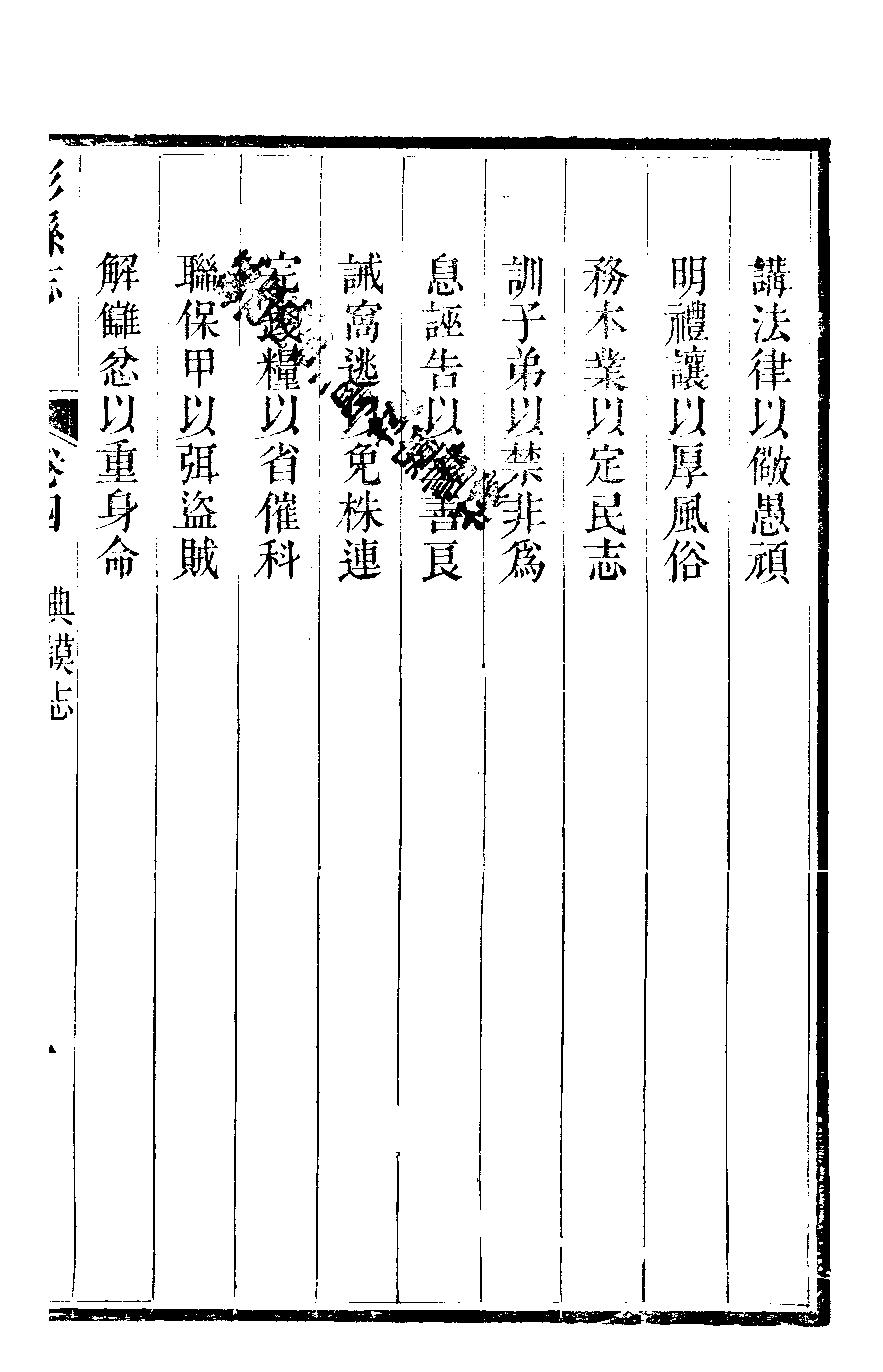 講法律以儆愚頑
明禮讓以厚風俗
務本業以定民志
訓子弟以禁非爲
息誣告以善良
誡窩逃以免株連
完錢糧以省催科
聯保甲以弭盜賊
解讎忿以重身命
縣志
卷四
典謨志